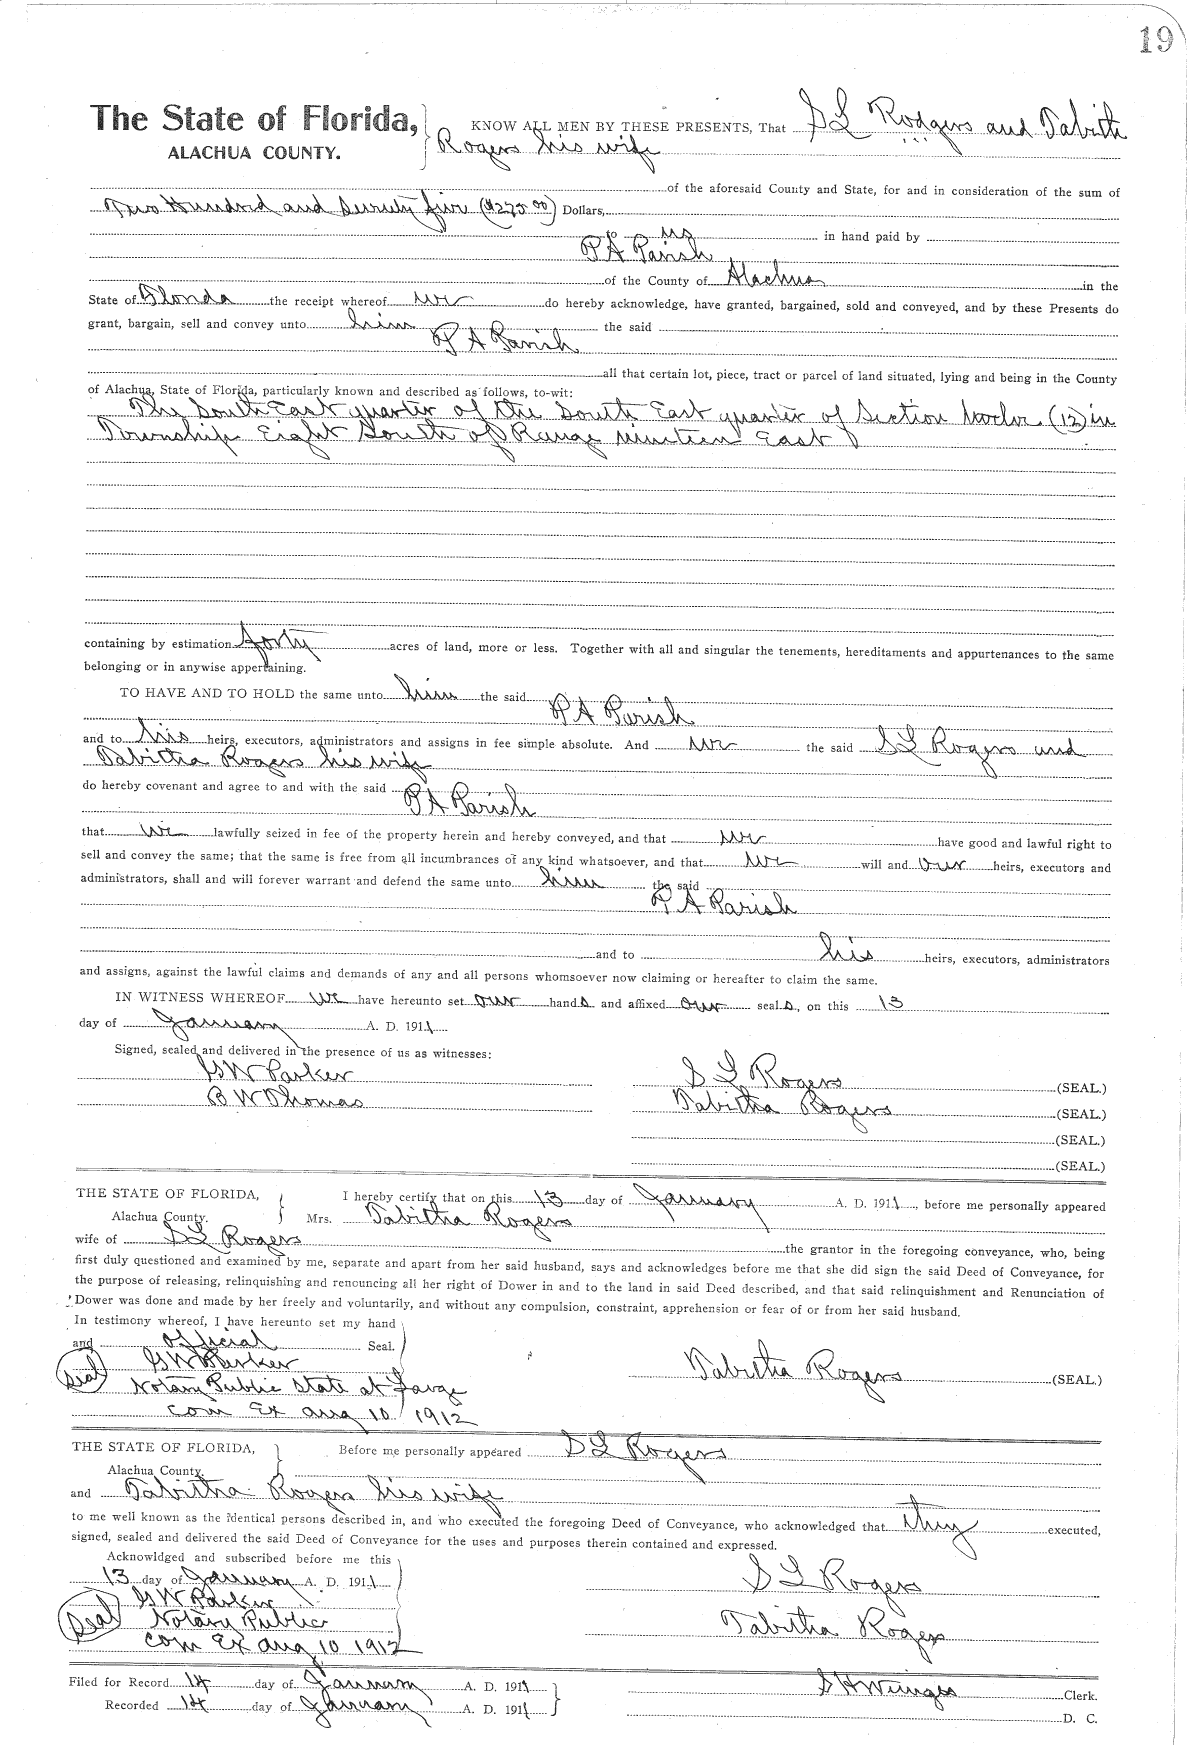 19
The State of Florida, KNOW ALL MEN BY THESE PRESENTS, That S L Rodgers and Tabith
ALACHUA COUNTY. Rogers his wife
of the aforesaid County and State, for and in consideration of the sum of
Two Hundred and Seventy five ($275 00) Dollars,
to us in hand paid by
P A Parish
of the County of Alachua in the
State of Florida the receipt whereof we do hereby acknowledge, have granted, bargained, sold and conveyed, and by these Presents do
grant, bargain, sell and convey unto him the said
P A Parish
all that certain lot, piece, tract or parcel of land situated, lying and being in the County
of Alachua, State of Florida, particularly known and described as follows, to-wit:
The South East quarter of the South East quarter of Section twelve (12) in
Township Eight South of Range nineteen East
containing by estimation forty acres of land, more or less. Together with all and singular the tenements, hereditaments and appurtenances to the same
belonging or in anywise appertaining.
TO HAVE AND TO HOLD the same unto him the said
P A Parish
and to his heirs, executors, administrators and assigns in fee simple absolute. And we the said S L Rogers and
Tabitha Rogers his wife
do hereby covenant and agree to and with the said
P A Parish
that we lawfully seized in fee of the property herein and hereby conveyed, and that we have good and lawful right to
sell and convey the same; that the same is free from all incumbrances of any kind whatsoever, and that we will and our heirs, executors and
administrators, shall and will forever warrant and defend the same unto him the said
P A Parish
and to his heirs, executors, administrators
and assigns, against the lawful claims and demands of any and all persons whomsoever now claiming or hereafter to claim the same.
IN WITNESS WHEREOF we have hereunto set our hands and affixed our seals, on this 13
day of January A. D. 1911
Signed, sealed and delivered in the presence of us as witnesses:
G W Parker S L Rogers (SEAL.)
B W Thomas Tabitha Rogers (SEAL.)
(SEAL.)
(SEAL.)
THE STATE OF FLORIDA, I hereby certify that on this 13 day of January A. D. 1911, before me personally appeared
Alachua County. Mrs. Tabitha Rogers
wife of S L Rogers the grantor in the foregoing conveyance, who, being
first duly questioned and examined by me, separate and apart from her said husband, says and acknowledges before me that she did sign the said Deed of Conveyance, for
the purpose of releasing, relinquishing and renouncing all her right of Dower in and to the land in said Deed described, and that said relinquishment and Renunciation of
Dower was done and made by her freely and voluntarily, and without any compulsion, constraint, apprehension or fear of or from her said husband.
In testimony whereof, I have hereunto set my hand
and official Seal.
G W Parker Tabitha Rogers (SEAL.)
Seal Notary Public State at Large
com Ex aug 10 1912
THE STATE OF FLORIDA, Before me personally appeared S L Rogers
Alachua County.
and Tabitha Rogers his wife
to me well known as the identical persons described in, and who executed the foregoing Deed of Conveyance, who acknowledged that they executed,
signed, sealed and delivered the said Deed of Conveyance for the uses and purposes therein contained and expressed.
Acknowldged and subscribed before me this
13 day of January A. D. 1911 S L Rogers
G W Parker
Seal Notary Public Tabitha Rogers
com Ex aug 10 1912
Filed for Record 14 day of January A. D. 1911 S H Wienges Clerk.
Recorded 14 day of January A. D. 1911 D. C.